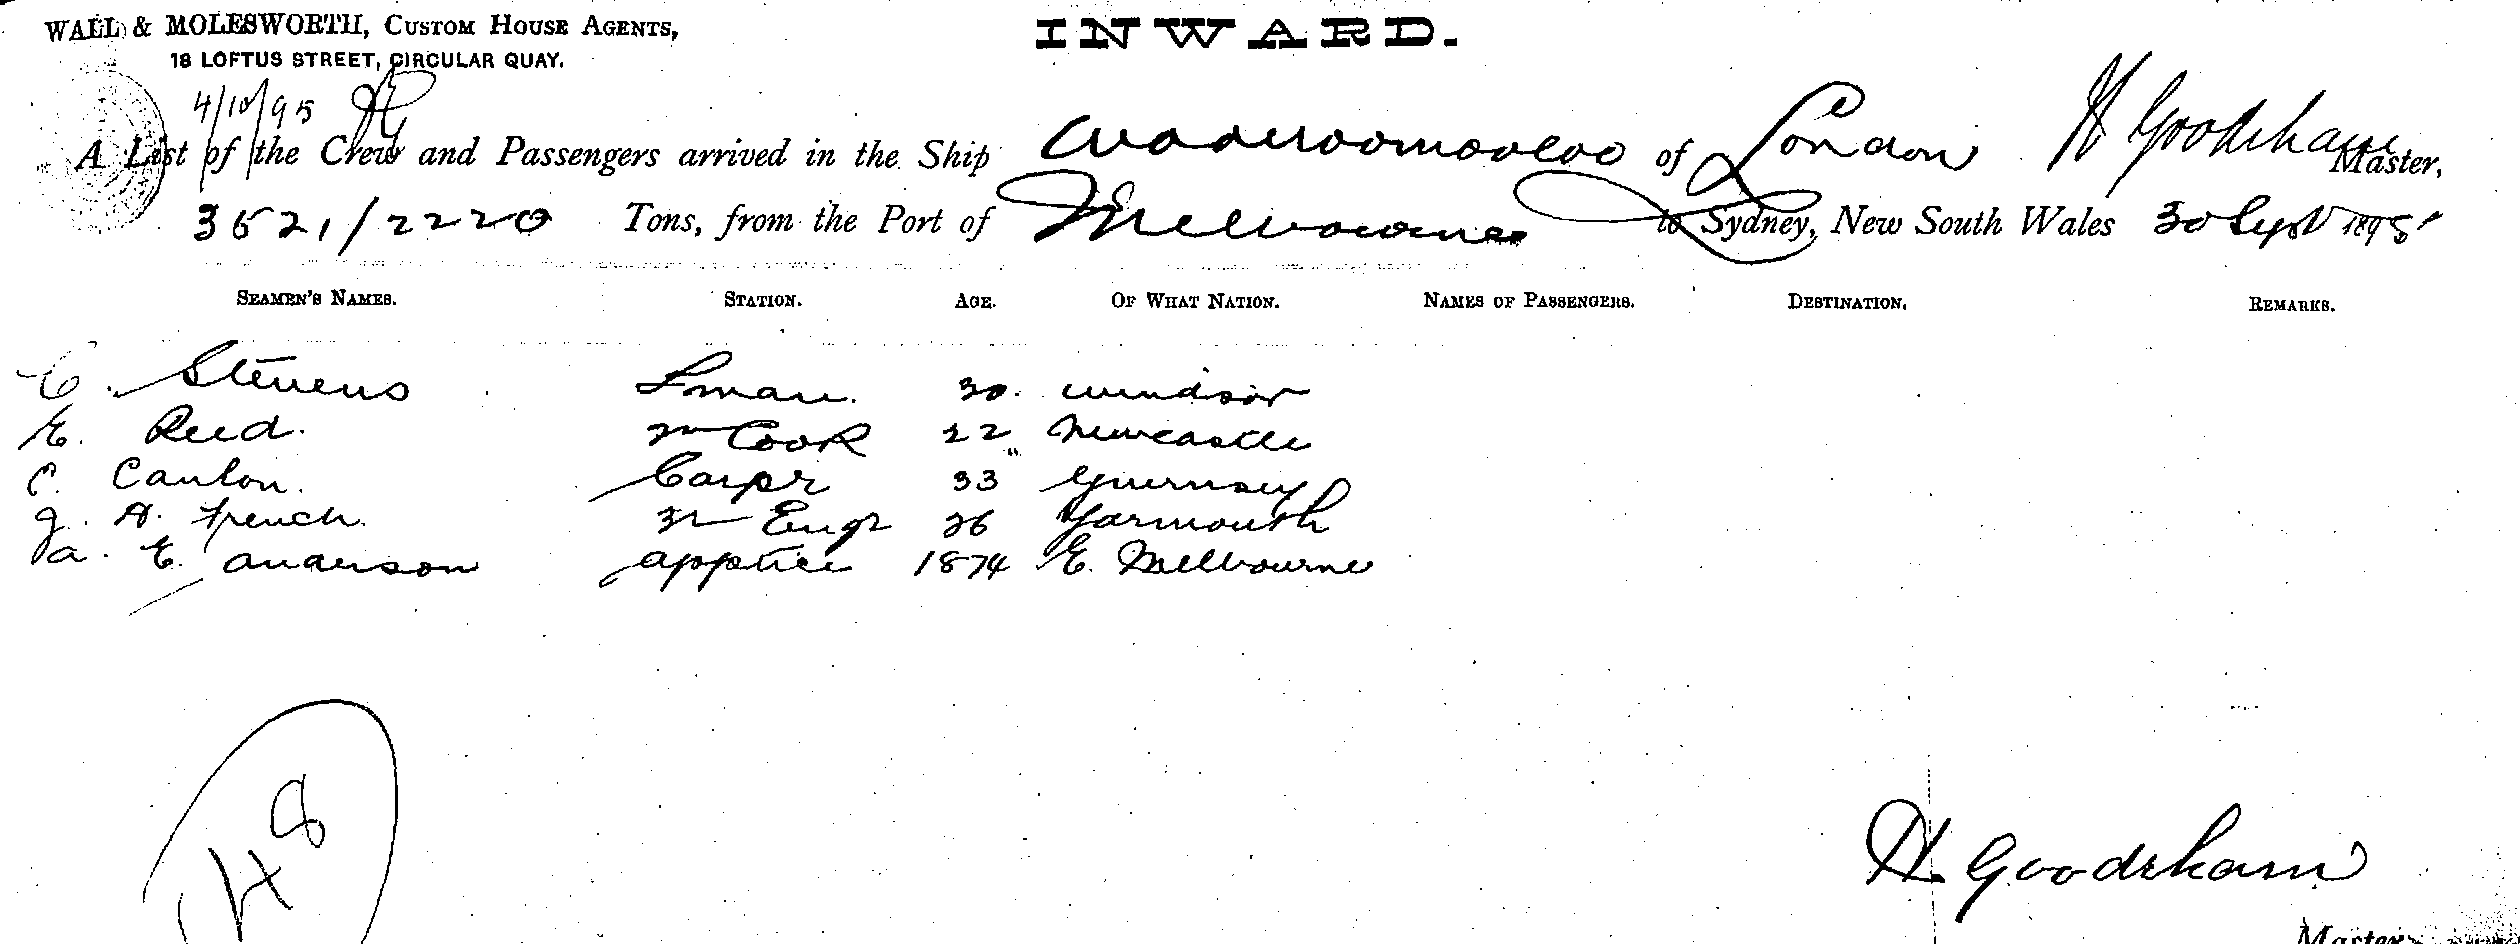 WALL & MOLESWORTH, CUSTOM HOUSE AGENTS,
18 LOFTUS STREET, CIRCULAR QUAY.
INWARD.
4/10/95
A List of the Crew and Passengers arrived in the Ship Woolloomooloo of London H Goodrham Master,
3521/2220 Tons, from the Port of Melbourne to Sydney, New South Wales 30 Sept 1895
SEAMEN'S NAMES. STATION. AGE. OF WHAT NATION. NAMES OF PASSENGERS. DESTINATION. REMARKS.
C. Stevens Sman. 30. Windsor
E. Reed. 2nd Cook 22 Newcastle
C. Canton. Carpr 33 Guernsey
J. A. French. 3rd Engr 26 Yarmouth
A. E. Anderson apptice 1874 E. Melbourne
48
H Goodrham
Master